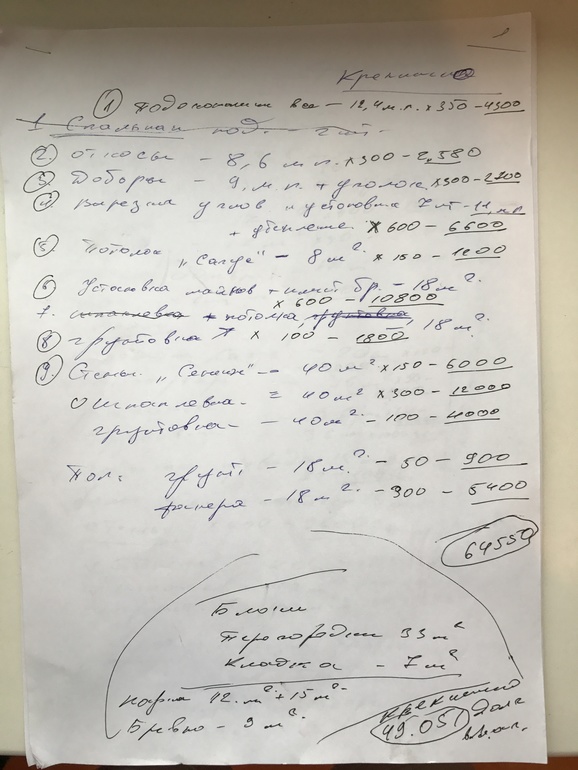 ① Подоконники все – 12,4 м.п. х350 – 4300
1 Спальная под. – 2 шт.
②. откосы – 8,6 м.п. х300 – 2,580
③. Доборы – 9, м.п. + уголок х300 – 2700
④. Вырезка углов и установка 7 шт – 11, м.п
+ утепление х 600 – 6600
⑤. Потолок „Сенеж" – 8 м². х 150 – 1200
⑥ Установка маяков + – 18 м².
х 600 – 10800
7. шпаклевка потолка грунтовка
⑧ грунтовка х 100 – 1800 18 м².
⑨. Стены. „Сенеж" – 40 м² х150 – 6000
Шпаклевка. = 40 м² х300 – 12000
грунтовка – 40 м². – 100 – 4000
Пол: грунт. – 18 м². – 50 – 900
фанера – 18 м². – 300 – 5400
64550
Блоки
Перегородки 33 м²
Кладка – 7 м²
12. м² + 15 м².
Бревно – 9 м².
49.051